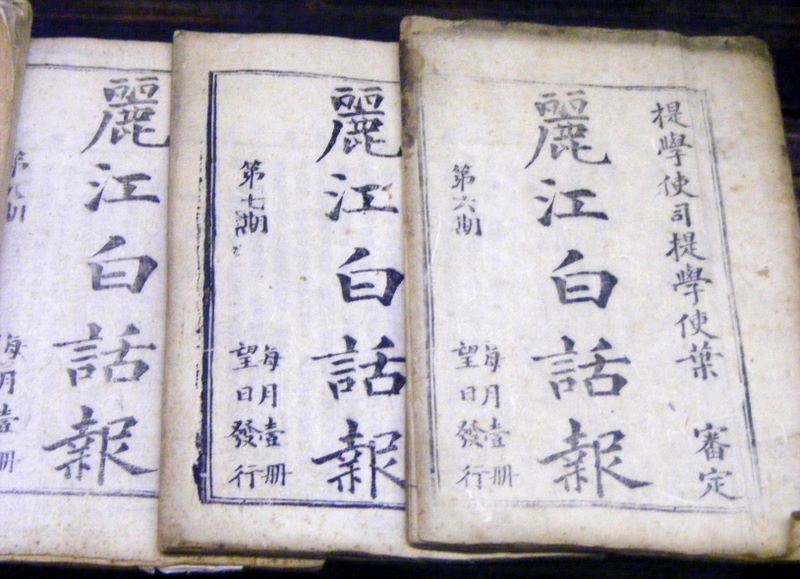 提學使司提學使葉 審定
麗江白話報
第六期
每月壹册
望日發行
麗江白話報
第七期
每月壹册
望日發行
麗江白話報
第八期
每月壹册